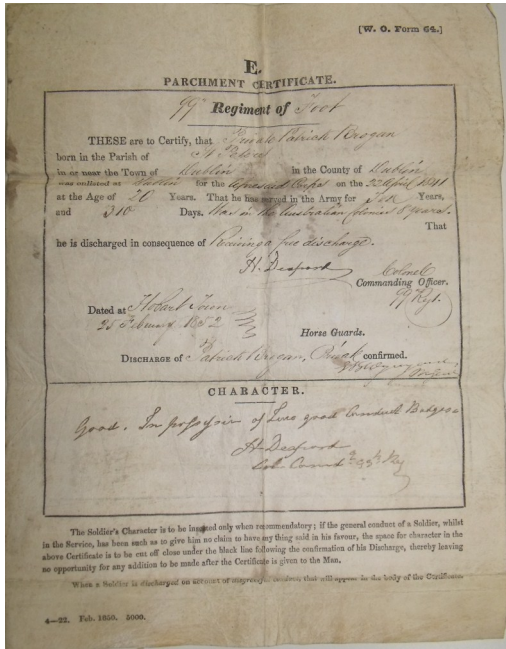 [W. O. Form 64.]
E.
PARCHMENT CERTIFICATE.
99 Regiment of Foot
THESE are to Certify, that Private Patrick Brogan
born in the Parish of St Peters
in or near the Town of Dublin in the County of Dublin
was enlisted at Dublin for the aforesaid Corps on the 22 April 1841
at the Age of 20 Years. That he has served in the Army for Years,
and 310 Days. Was in the Australian Colonies 8 years.
That
he is discharged in consequence of Receiving a free discharge.
H. Despard
Colonel
Commanding Officer.
99 Regt.
Dated at Hobart Town
25 February 1852
Horse Guards.
DISCHARGE of Patrick Brogan, confirmed.
CHARACTER.
Good. In possession of good Conduct Badges
H. Despard
Col. 99th
The Soldier's Character is to be inserted only when recommendatory; if the general conduct of a Soldier, whilst
in the Service, has been such as to give him no claim to have any thing said in his favour, the space for character in the
above Certificate is to be cut off close under the black line following the confirmation of his Discharge, thereby leaving
no opportunity for any addition to be made after the Certificate is given to the Man.
When a Soldier is discharged on account of that will appear in the body of the Certificate.
4—22. Feb. 1850. 5000.